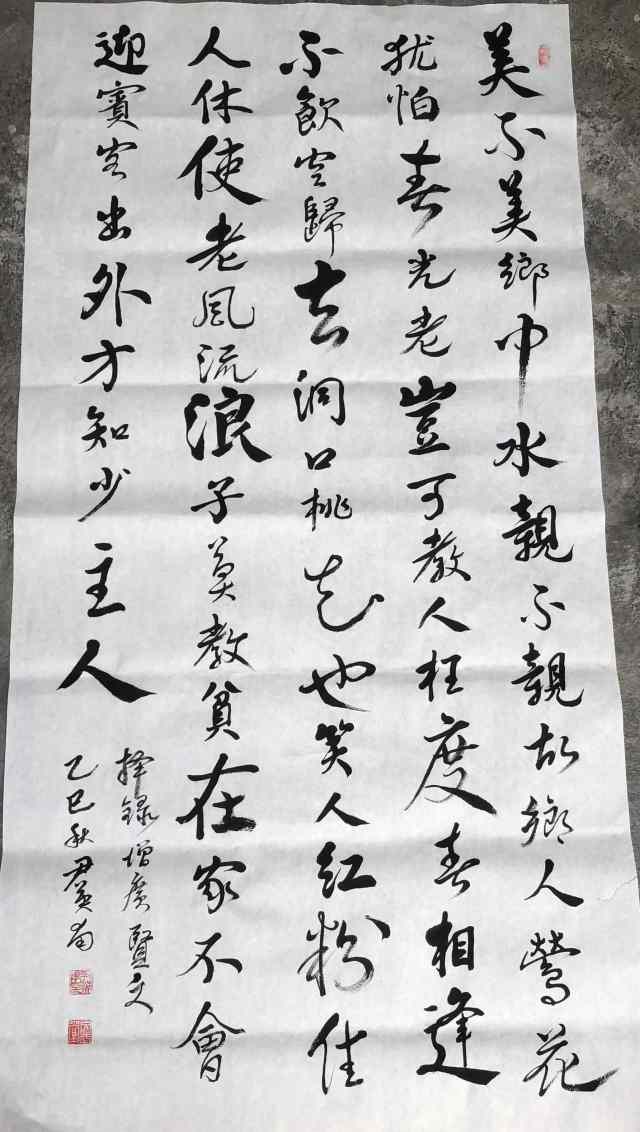 美不美鄉中水親不親故鄉人鶯花
犹怕春光老豈可教人枉度春相逢
不飲空歸去洞口桃花也笑人红粉佳
人休使老風流浪子莫教貧在家不會
迎賓客出外方知少主人
择録增廣賢文
乙巳秋